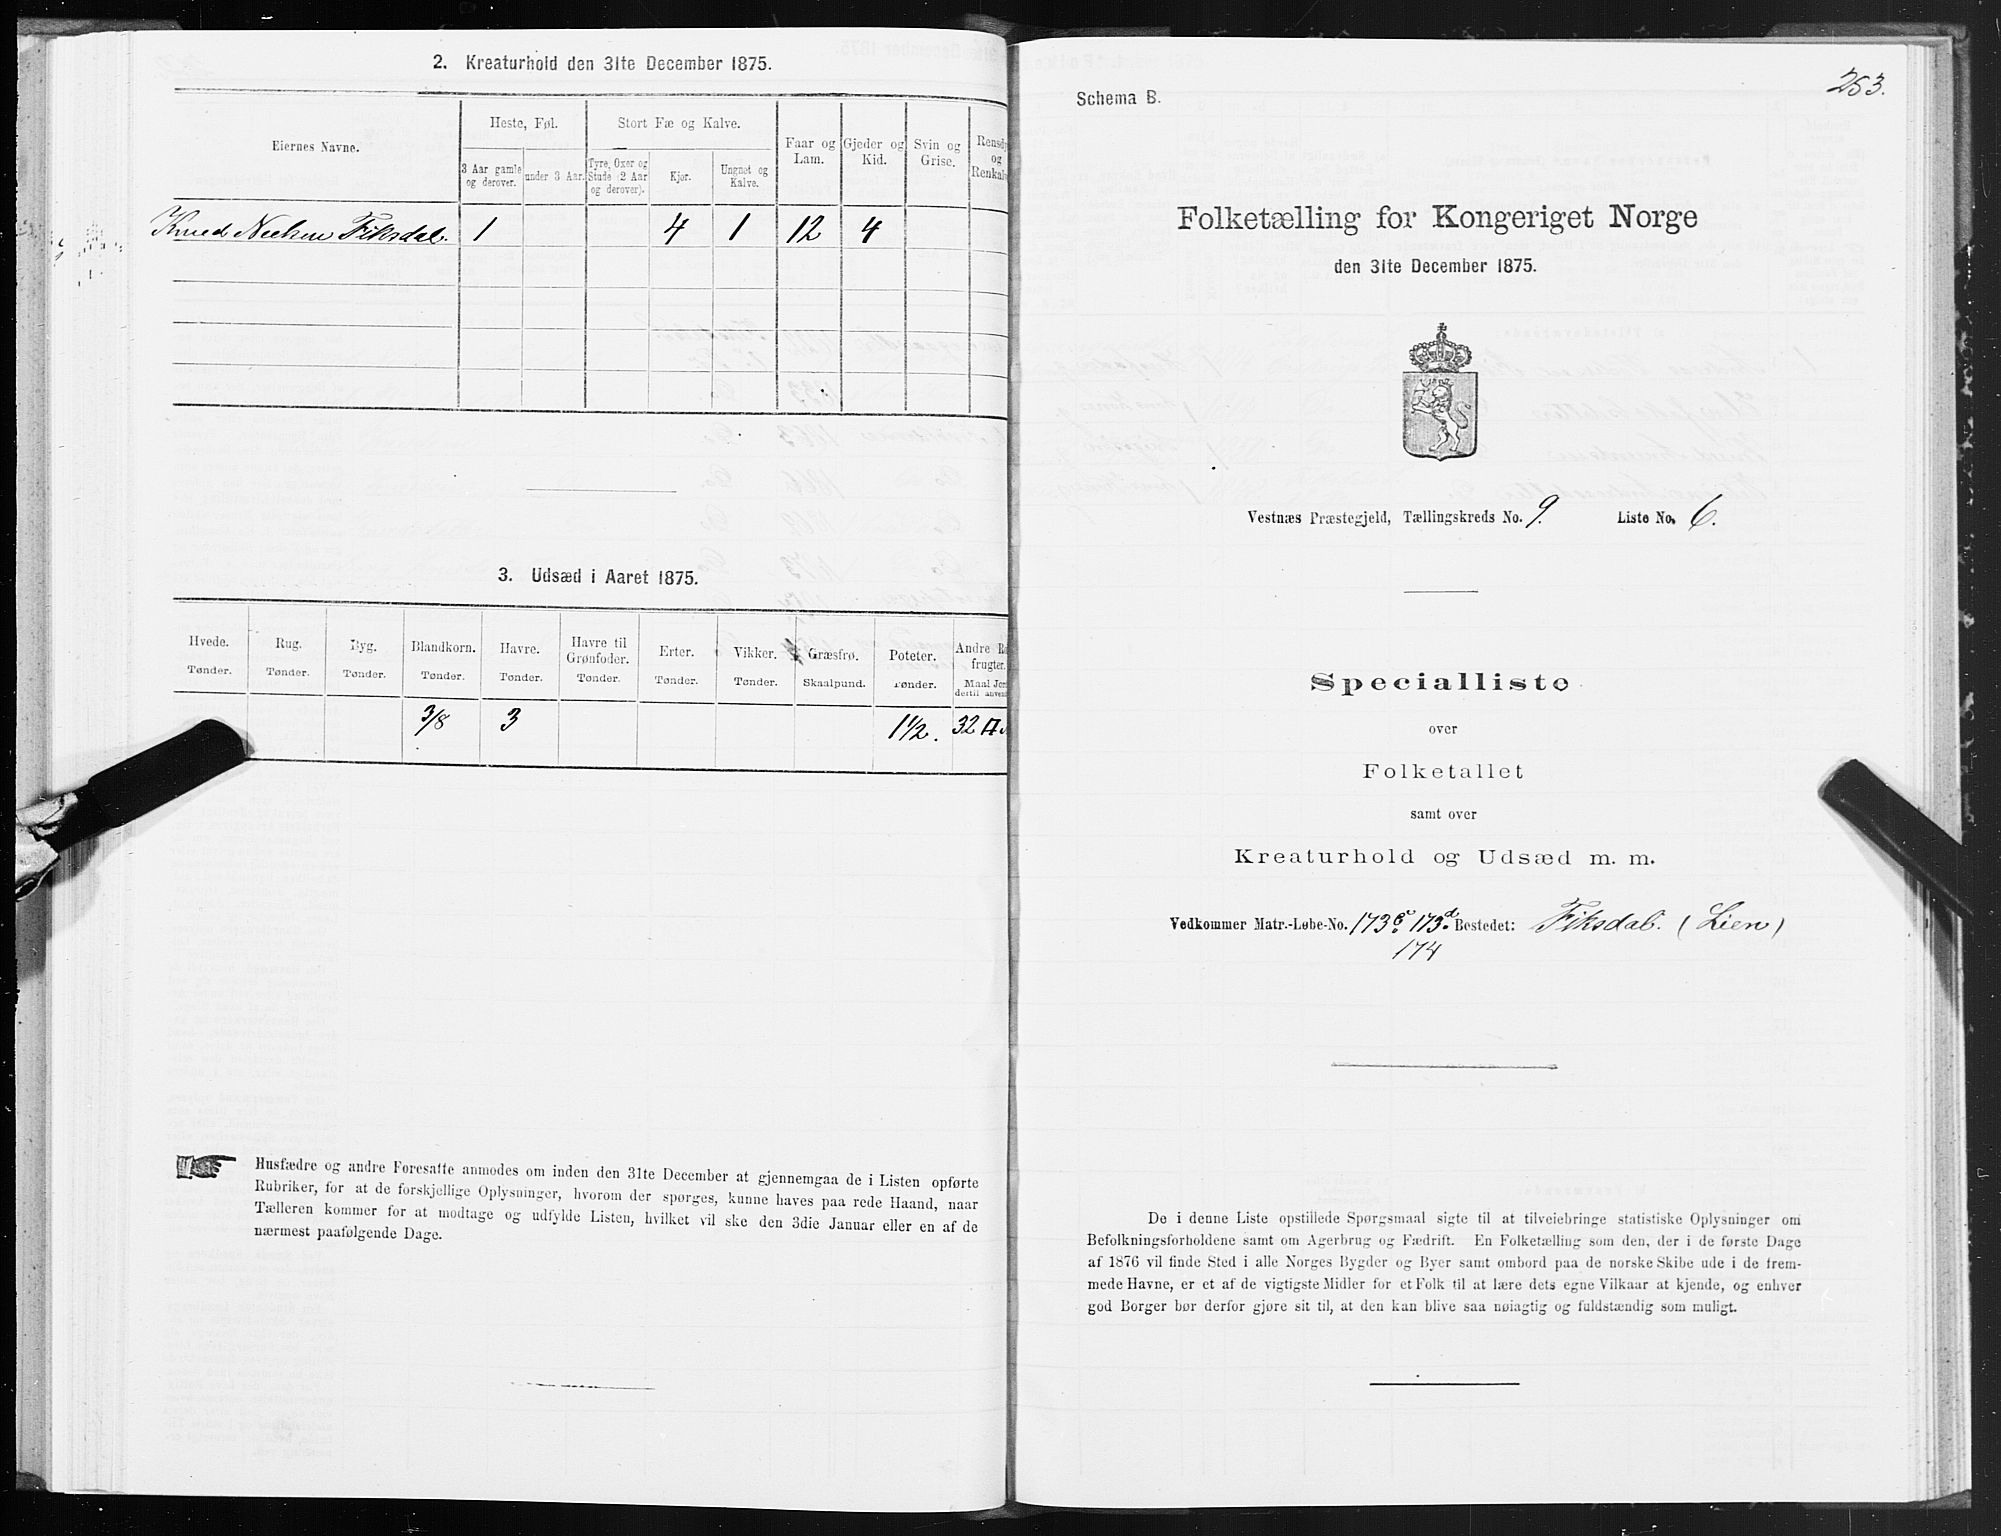 2. Kreaturhold den 31te December 1875.
Eiernes Navne.
Heste, Føl.
Stort Fæ og Kalve.
Faar og Lam.
Gjeder og Kid.
Svin og Grise.
og
3 Aar gamle og derover.
under 3 Aar.
Tyre, Oxer og Stude (2 Aar og derover).
Kjør.
Ungnøt og Kalve.
Knud Fiksdal. 1 4 1 12 4
3. Udsæd i Aaret 1875.
Hvede. Rug. Byg. Blandkorn. Havre. Havre til Grønfoder. Erter. Vikker. Græsfrø. Poteter. Andre
frugter.
Tønder. Tønder. Tønder. Tønder. Tønder. Tønder. Tønder. Tønder. Skaalpund. Tønder. Maal
dertil
3/8 3 1 1/2. 32
Husfædre og andre Foresatte anmodes om inden den 31te December at gjennemgaa de i Listen opførte
Rubriker, for at de forskjellige Oplysninger, hvorom der spørges, kunne haves paa rede Haand, naar
Tælleren kommer for at modtage og udfylde Listen, hvilket vil ske den 3die Januar eller en af de
nærmest paafølgende Dage.
253.
Schema B.
Folketælling for Kongeriget Norge
den 31te December 1875.
Vestnæs Præstegjeld, Tællingskreds No. 9. Liste No. 6.
Specialliste
over
Folketallet
samt over
Kreaturhold og Udsæd m. m.
Vedkommer Matr.-Løbe-No. 173c. 173d. Bostedet: Fiksdal. (Lien)
174
De i denne Liste opstillede Spørgsmaal sigte til at tilveiebringe statistiske Oplysninger om
Befolkningsforholdene samt om Agerbrug og Fædrift. En Folketælling som den, der i de første Dage
af 1876 vil finde Sted i alle Norges Bygder og Byer samt ombord paa de norske Skibe ude i de frem-
mede Havne, er et af de vigtigste Midler for et Folk til at lære dets egne Vilkaar at kjende, og enhver
god Borger bør derfor gjøre sit til, at den kan blive saa nøiagtig og fuldstændig som muligt.